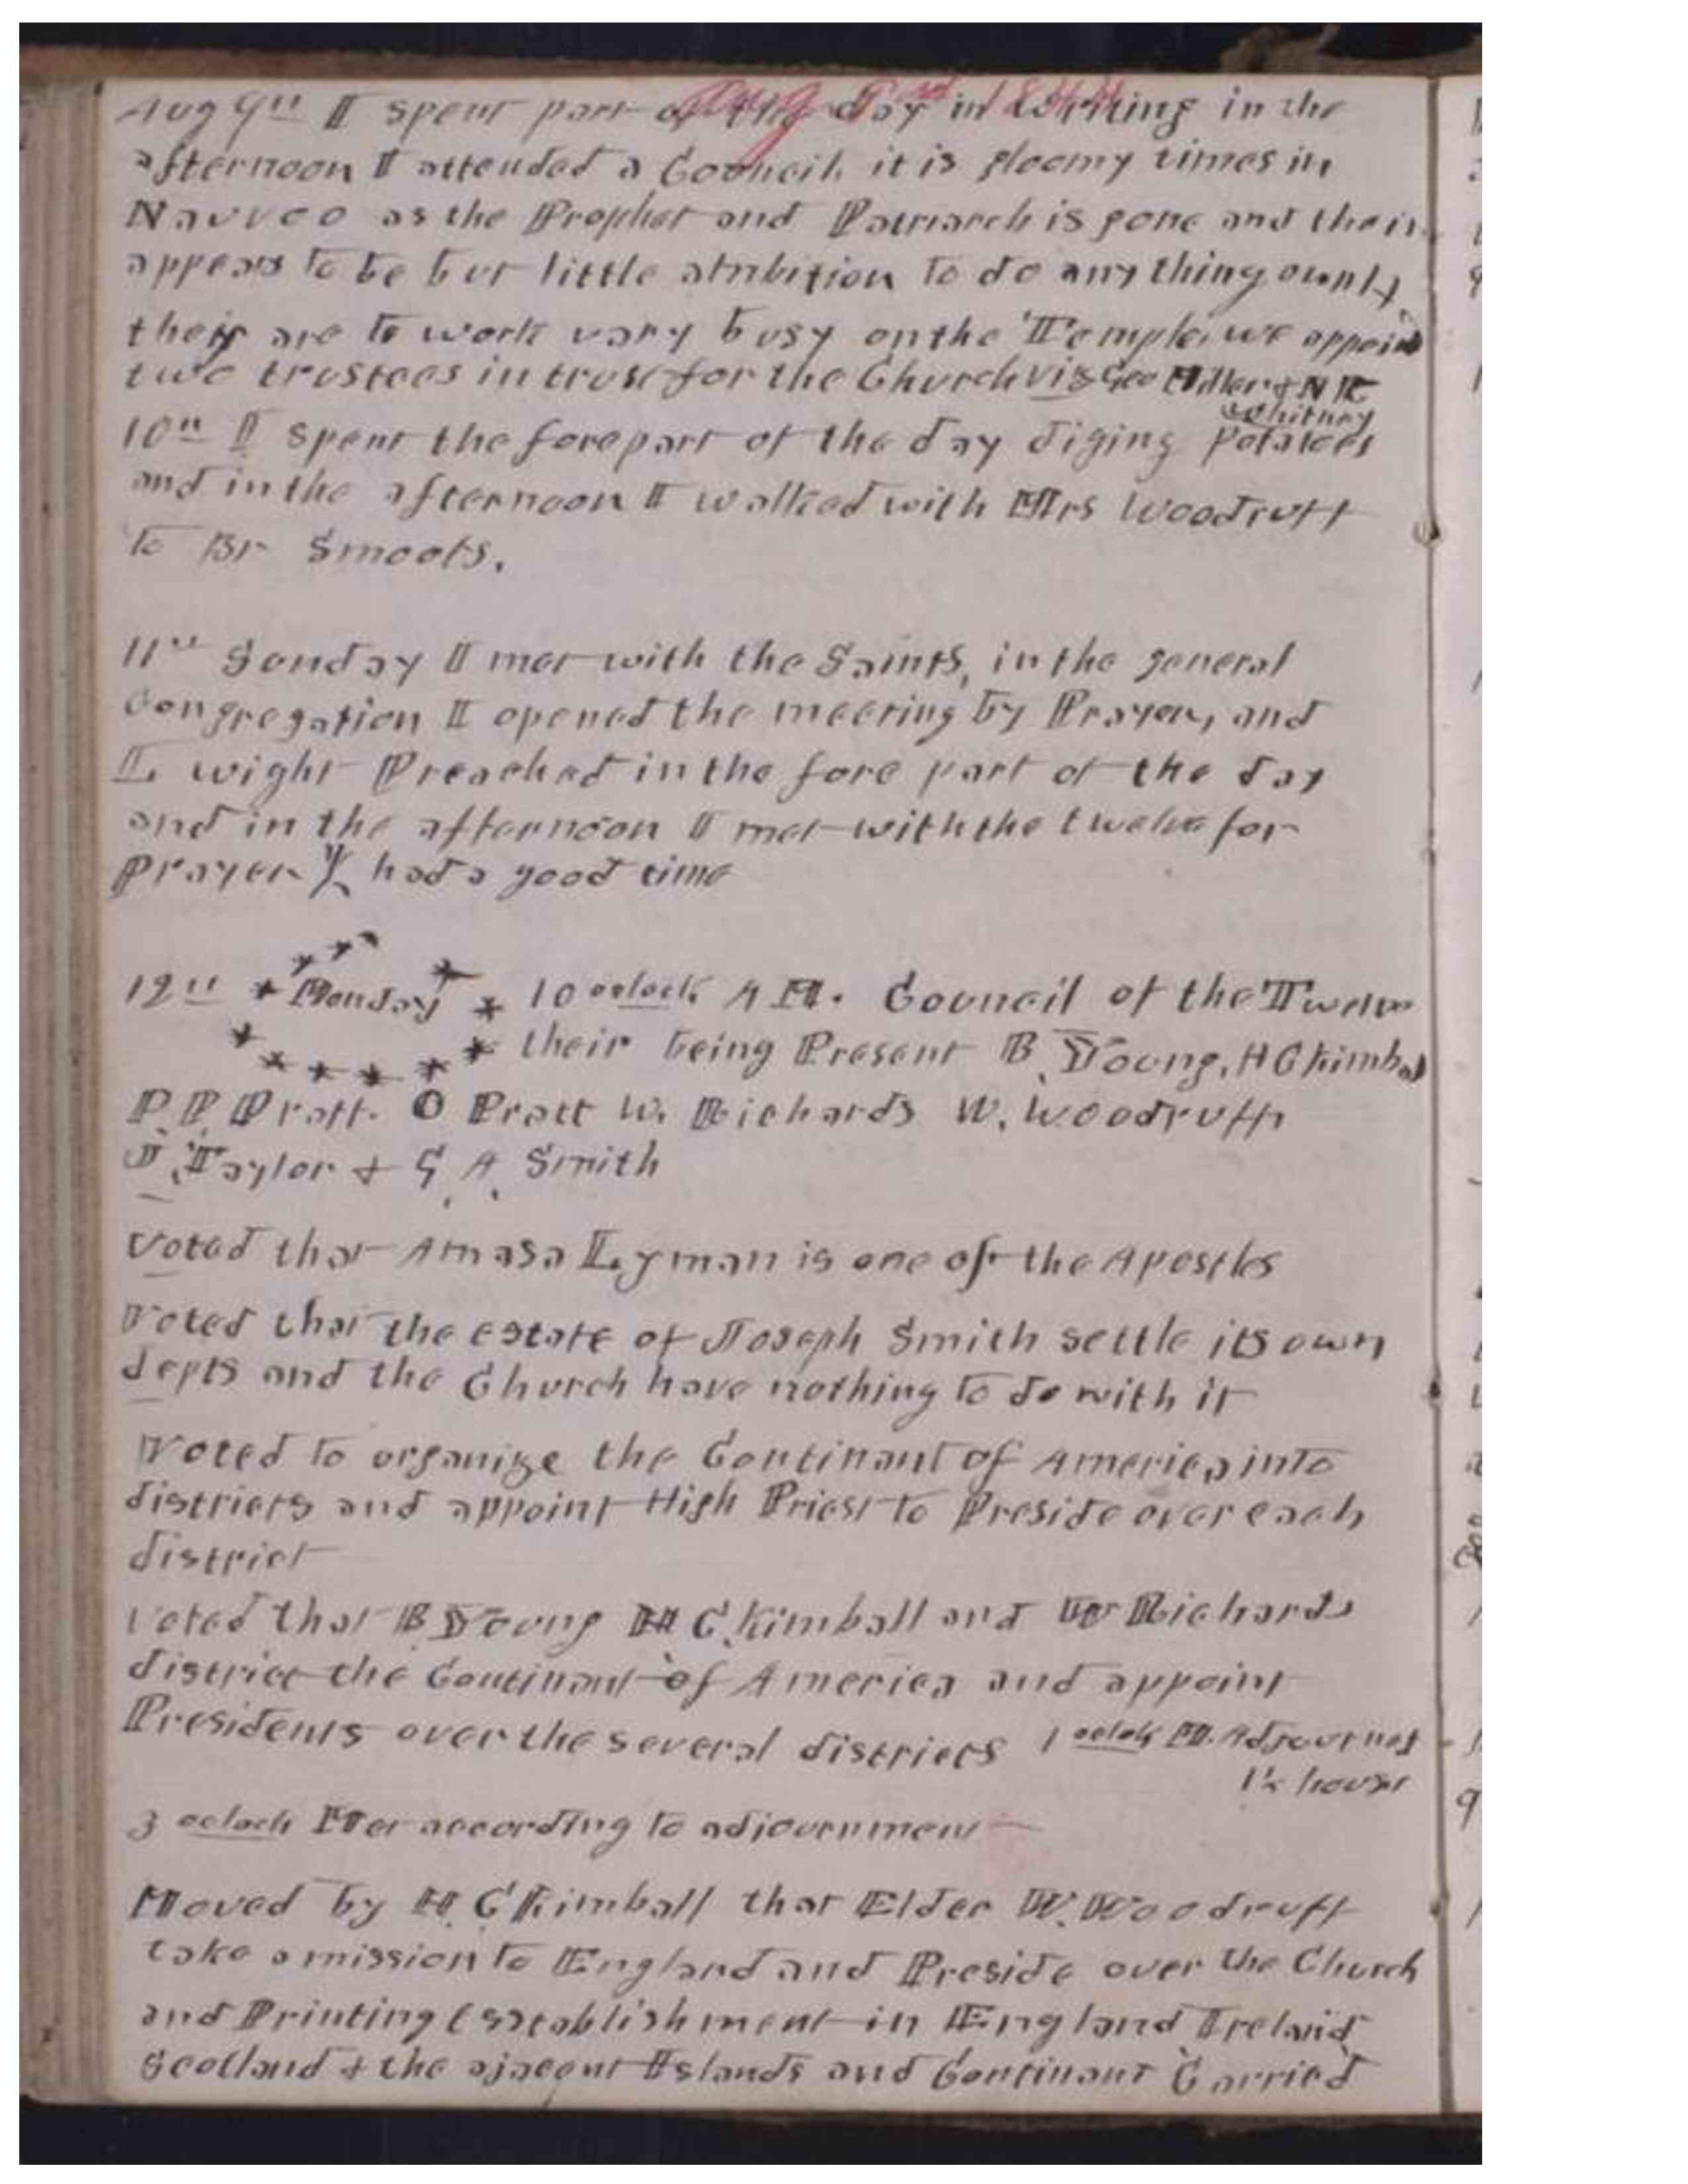 Aug 9th 1844
Aug 9th I spent part of the day in writing in the
afternoon I attended a Councih it is gloomy times in
Nauvoo as the Prophet and Patriarch is gone and their
appears to be but little ambition to do any thing ownly
their are to work vary busy on the Temple, we appoint
two trustees in trust for the Church viz Geo Miller & N K
Whitney
10th I spent the forepart of the day diging Potatoes
and in the afternoon I walked with Mrs Woodruff
to Br Smoots.
11th Sunday I met with the Saints, in the general
Congregation I opened the meeting by Prayer, and
L wight Preached in the fore part of the day
and in the afternoon I met with the twelve for
prayer & had a good time
12th Monday 10 oclock A M. Council of the Twelve
their being Present B Young, H C Kimbal
P. P. Pratt. O Pratt W. Richards W. Woodruff
J. Taylor & G. A. Smith
Voted that Amasa Lyman is one of the Apostles
Voted that the estate of Joseph Smith settle its own
depts and the Church have nothing to do with it
Voted to organize the Continant of America into
districts and appoint High Priest to Preside over each
district
Voted that B Young H C. Kimball and W Richards
district the Continant of America and appoint
Presidents over the several districts 1 oclok M. Adjourned
1½ hour
3 oclock Met according to adjournment
Moved by H. C Kimball that Elder W. Woodruff
take a mission to England and Preside over the Church
and Printing Esstablishment in England Ireland
Scotland & the ajacent Islands and Continant Carried